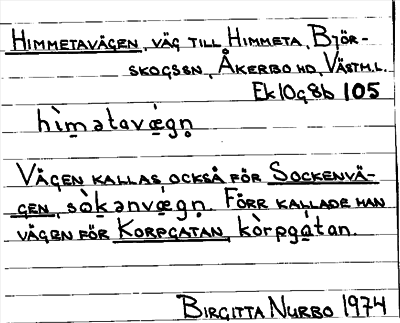 HIMMETAVÄGEN, VÄG TILL HIMMETA, BJÖR-
SKOGSSN, ÅKERBO HD, VÄSTM.L.
Ek10g8b 105
hìm̠ətavǽ̠gn̥
VÄGEN KALLAS OCKSÅ FÖR SOCKENVÄ-
GEN, sòk̠ənvǽ̠gn̥. FÖRR KALLADE MAN
VÄGEN FÖR KORPGATAN, kòrpgá̠tan.
BIRGITTA NURBO 1974